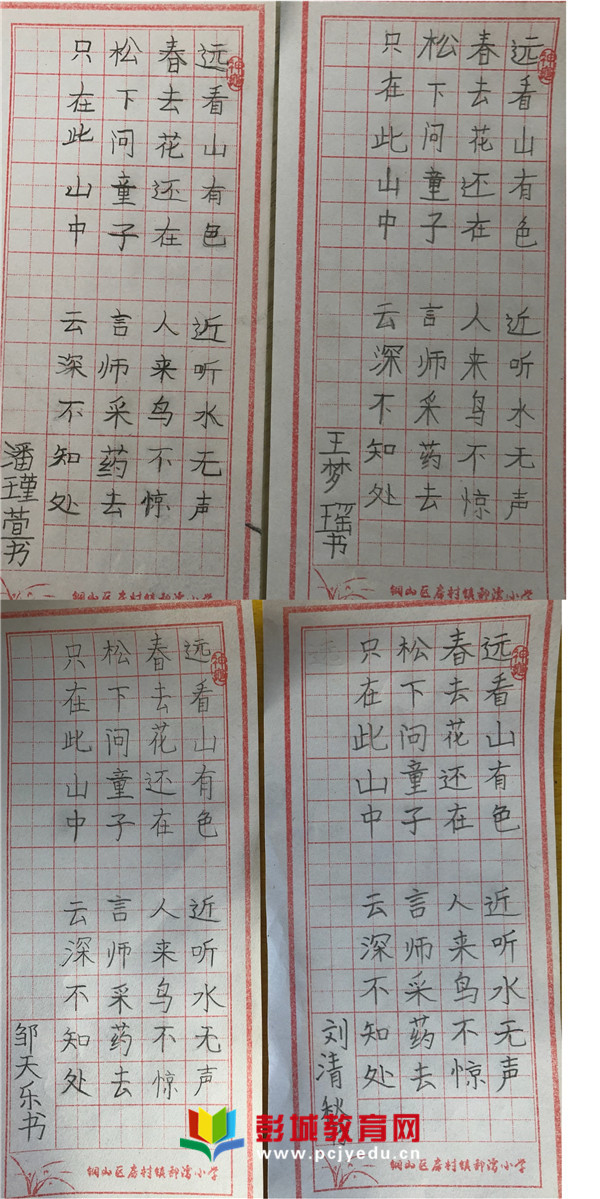 远看山有色 近听水无声
春去花还在 人来鸟不惊
松下问童子 言师采药去
只在此山中 云深不知处
潘瑾萱书
铜山区房村镇小学
远看山有色 近听水无声
春去花还在 人来鸟不惊
松下问童子 言师采药去
只在此山中 云深不知处
王梦瑶书
铜山区房村镇小学
远看山有色 近听水无声
春去花还在 人来鸟不惊
松下问童子 言师采药去
只在此山中 云深不知处
邹天乐书
铜山区房村镇小学
远看山有色 近听水无声
春去花还在 人来鸟不惊
松下问童子 言师采药去
只在此山中 云深不知处
刘清秋
铜山区房村镇小学
彭城教育网
www.pcjyedu.cn